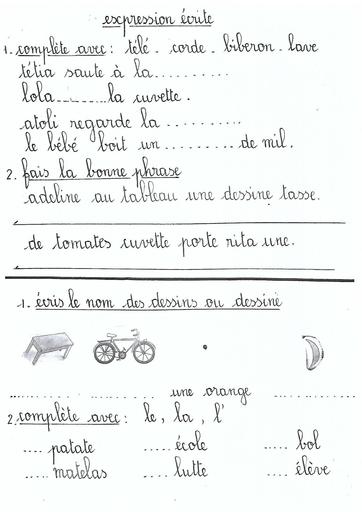 expression écrite
1. complète avec : télé - corde - biberon - lave
tétia saute à la..........
lola.........la cuvette.
atoli regarde la ..........
le bébé boit un..........de mil.
2. fais la bonne phrase
adeline au tableau une dessine tasse.
de tomates cuvette porte rita une.
1. écris le nom des dessins ou dessine
............... ............... une orange ...............
2. complète avec : le, la, l'
.... patate ..... école ..... bol
..... matelas ..... lutte ..... élève